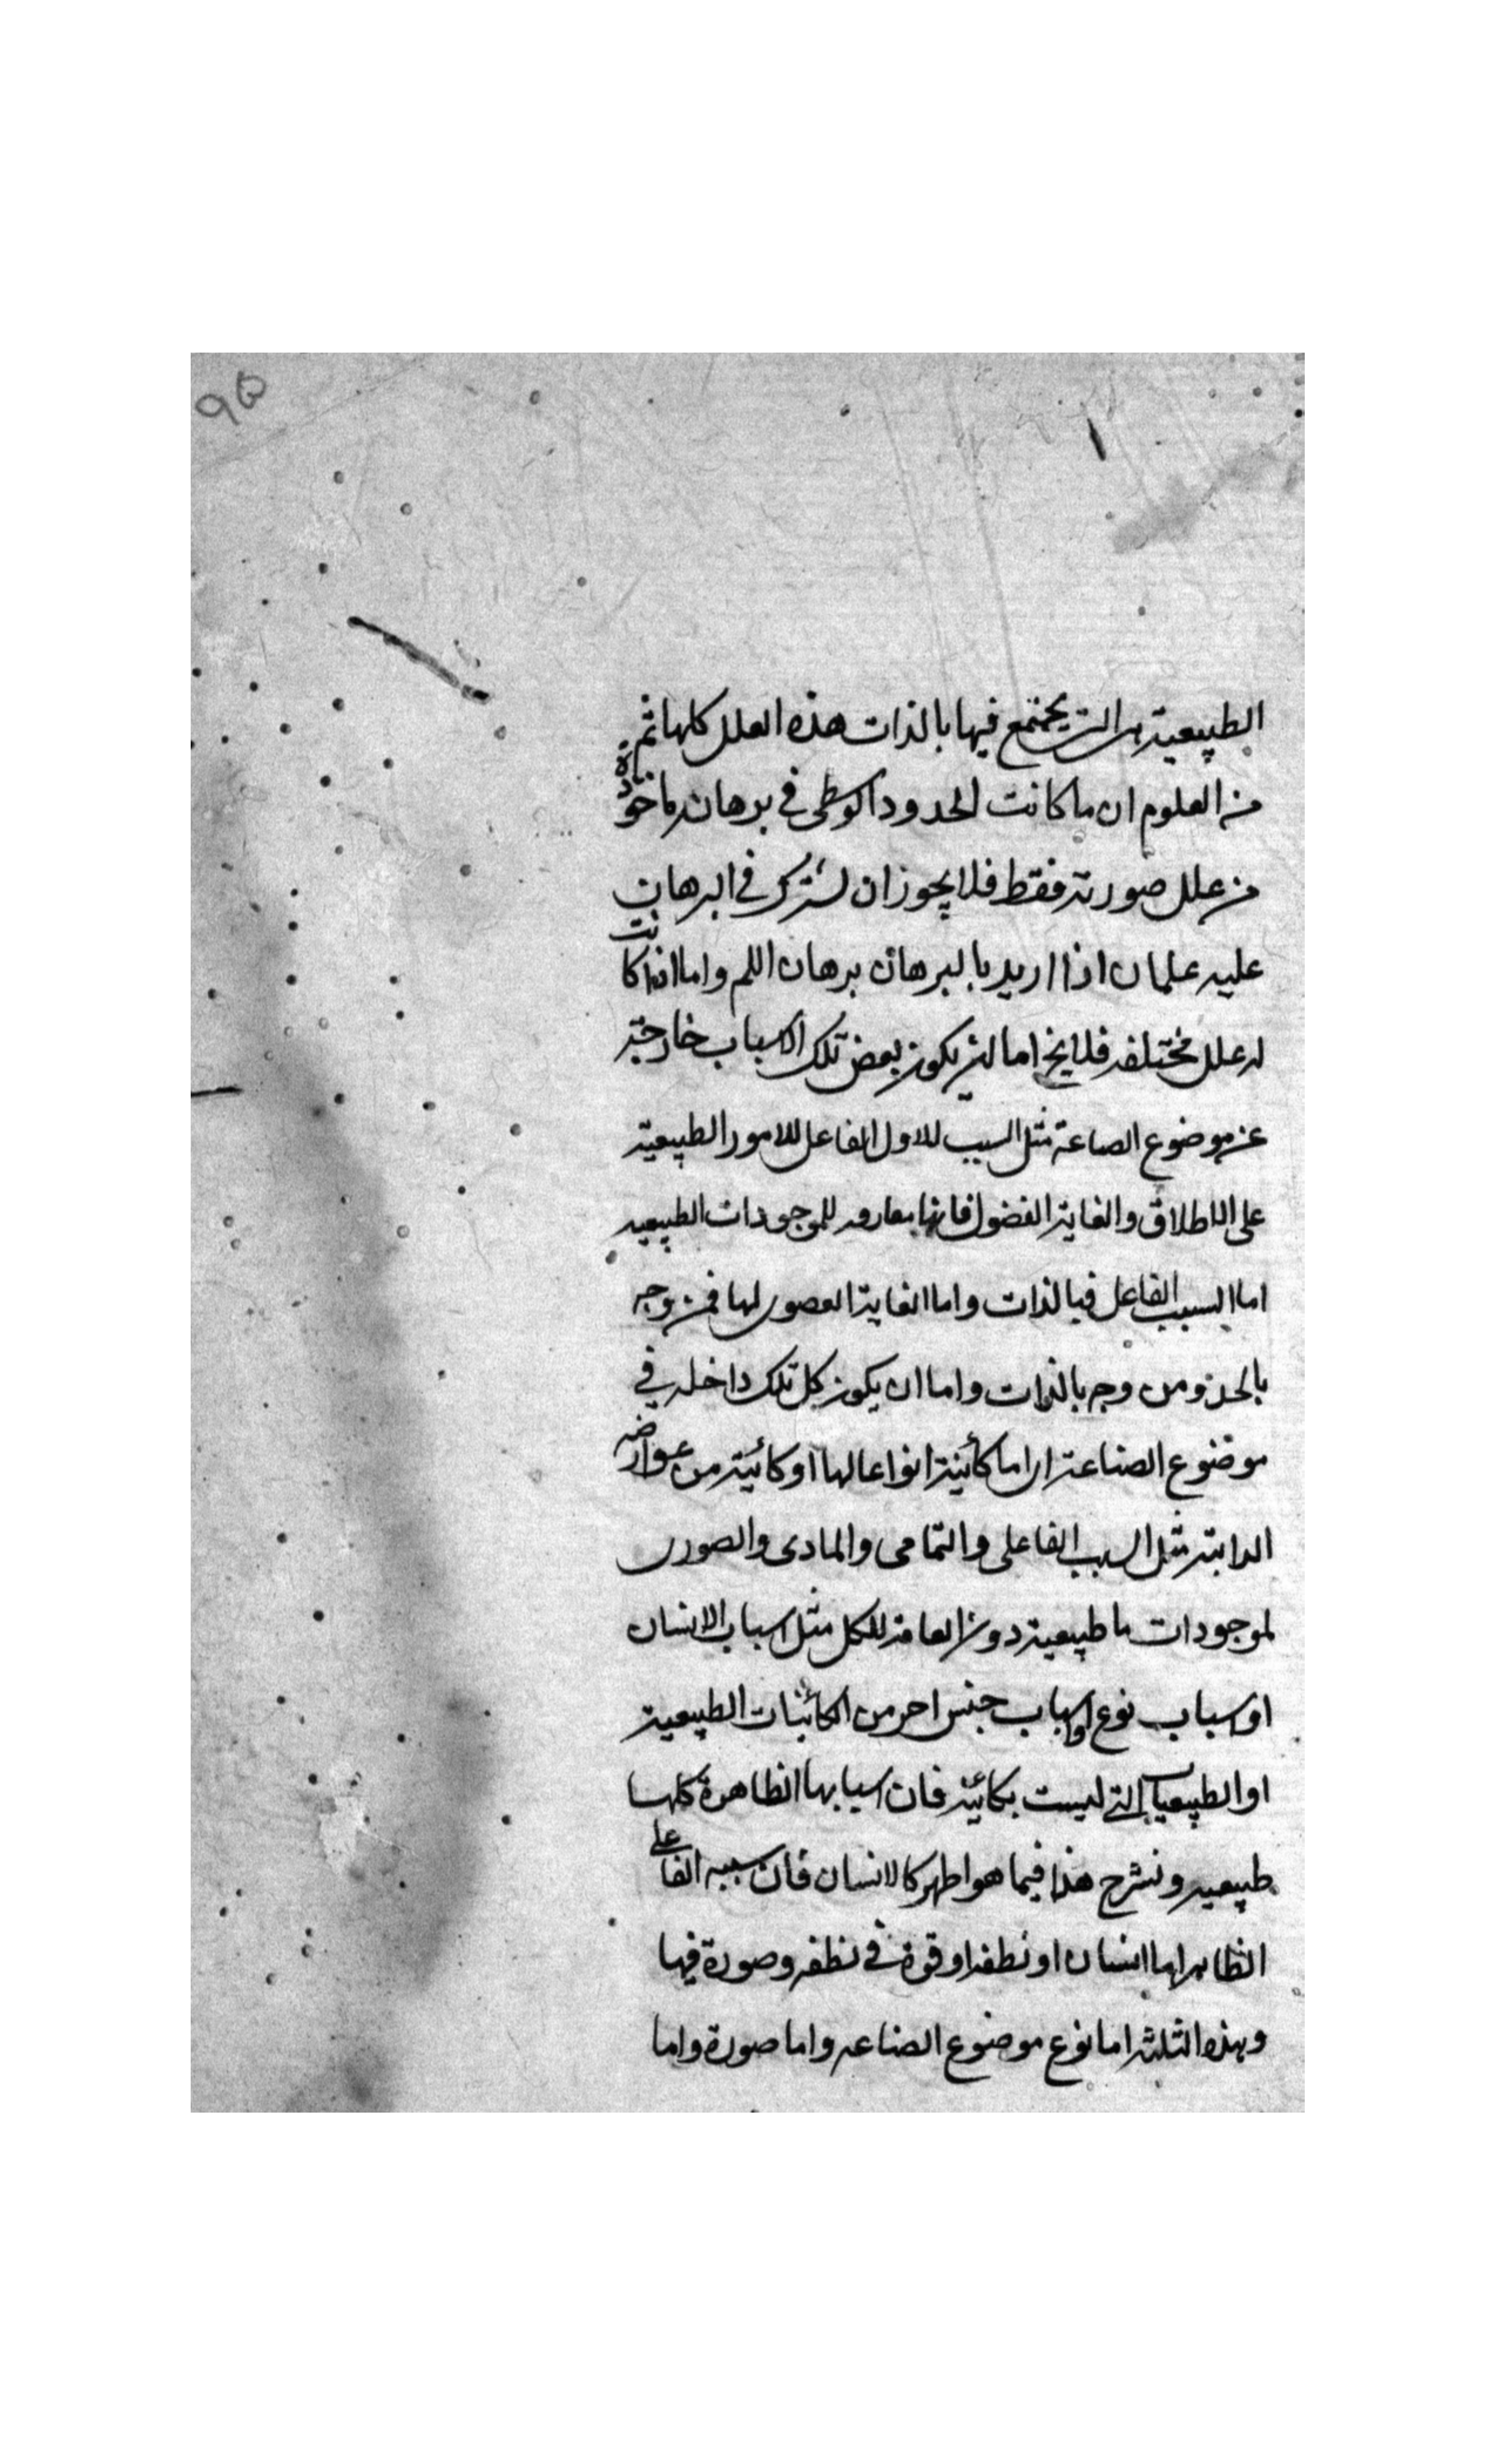 95
الطبيعية هى التى يجتمع فيها بالذات هذه العلل كلها ثم
من العلوم ان ما كانت الحدود الوسطى فى برهانه ماخوذة
من علل صورته فقط فلا يجوز ان يشترك فى البرهان
عليه علمان اذا اريد بالبرهان برهان اللم واما اذا كانت
له علل مختلفه فلا يخ اما ان يكون بعض تلك الاسباب خارجة
عن موضوع الصاعة مثل السبب للاول الفاعل للامور الطبيعية
على الاطلاق والغاية الفضول فانها مفارقه للموجودات الطبيعيه
اما السبب الفاعل فبالذات واما الغاية العصوى لها فمن وجه
بالحد ومن وجه بالذات واما ان يكون كل تلك داخله فى
موضوع الصناعة اى اما كائنة انواعا لها او كائنة من عوارضه
الذاتية مثل السبب الفاعلى والتمامى والمادى والصورى
لموجودات ما طبيعية دون العامة للكل مثل اسباب الانسان
او اسباب نوع او اسباب جنس اخر من الكائنات الطبيعية
او الطبيعيات التى ليست بكائنة فان اسبابها الظاهرة كلها
طبيعيه ونشرح هذا فيما هو اظهر كالانسان فان سببه الفاعلى
الظاهر اما انسان او نطفه او قوة فى نطفه وصورة فيها
وهذه الثلثه اما نوع موضوع الصناعه واما صورة واما